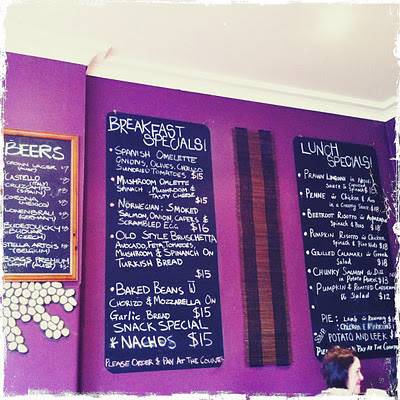 BEERS
CROWN LAGER $7
(AUST)
(ITALY)
(SPAIN)
CORONA
(MEXICO)
STELLA ARTOIS
(BELGIUM)
BOAGS PREMIUM
LIGHT (AUST)
BREAKFAST
SPECIALS!
• SPANISH OMELETTE
ONIONS, OLIVES, CHORIZO
SUNDRIED TOMATOES $15
• MUSHROOM OMLETTE
SPINACH, MUSHROOM &
TASTY CHEESE
$15
• NORWEGIAN: SMOKED
SALMON, ONION CAPERS &
SCRAMBLED EGG $16
• OLD STYLE BRUSCHETTA
AVOCADO, FETA, TOMATOES,
MUSHROOM & SPINACH ON
TURKISH BREAD
$15
• BAKED BEANS W
CHORIZO & MOZZARELLA ON
GARLIC BREAD $15
SNACK SPECIAL
* NACHOS $15
PLEASE ORDER & PAY AT THE COUNTER
LUNCH
SPECIALS!
• PRAWN LINGUINI IN
SAUCE & $15
• PENNE W CHICKEN &
IN A CREAMY SAUCE $15
• BEETROOT RISOTTO W ASPARAGUS
SPINACH & PEAS $18
• PUMPKIN RISOTTO W CHICKEN
SPINACH & PINE NUTS $18
• GRILLED CALAMARI W GREEK
SALAD $18
• CHUNKY SALMON & DILL
IN POTATO FISHCAKES $15
• PUMPKIN & ROASTED
SALAD $12
PIE: LAMB & ROSEMARY
CHICKEN &
POTATO AND LEEK
PAY AT THE COUNTER